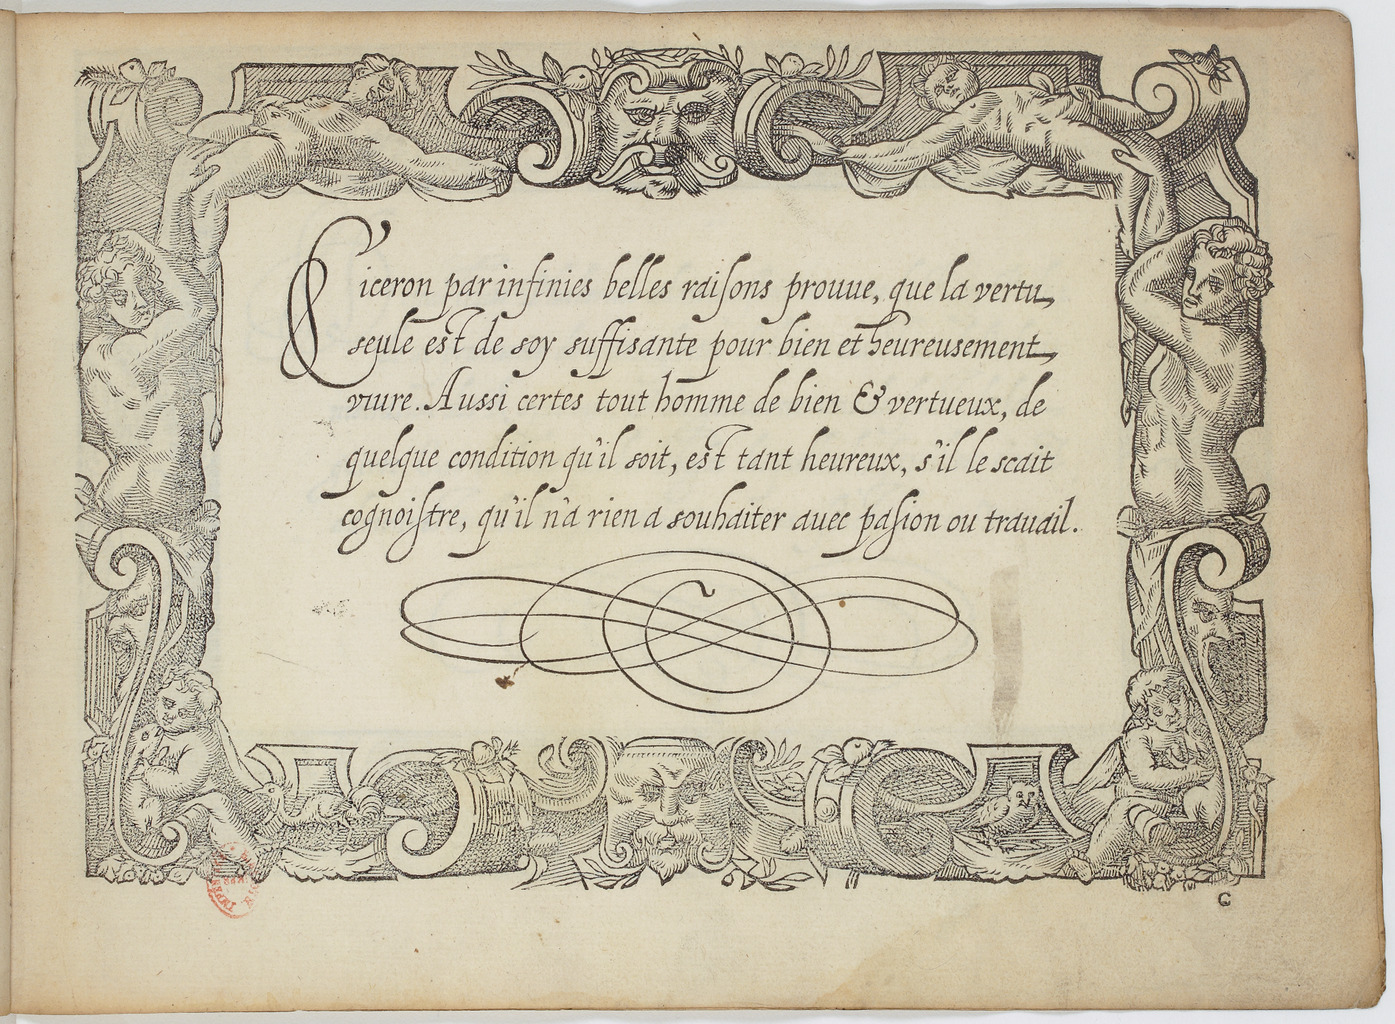 Ciceron par infinies belles raisons prouue, que la vertu
seule est de soy suffisante pour bien et heureusement
viure. Aussi certes tout homme de bien & vertueux, de
quelque condition qu'il soit, est tant heureux, s'il le scait
cognoistre, qu'il n'a rien a souhaiter auec pasion ou trauail.
C